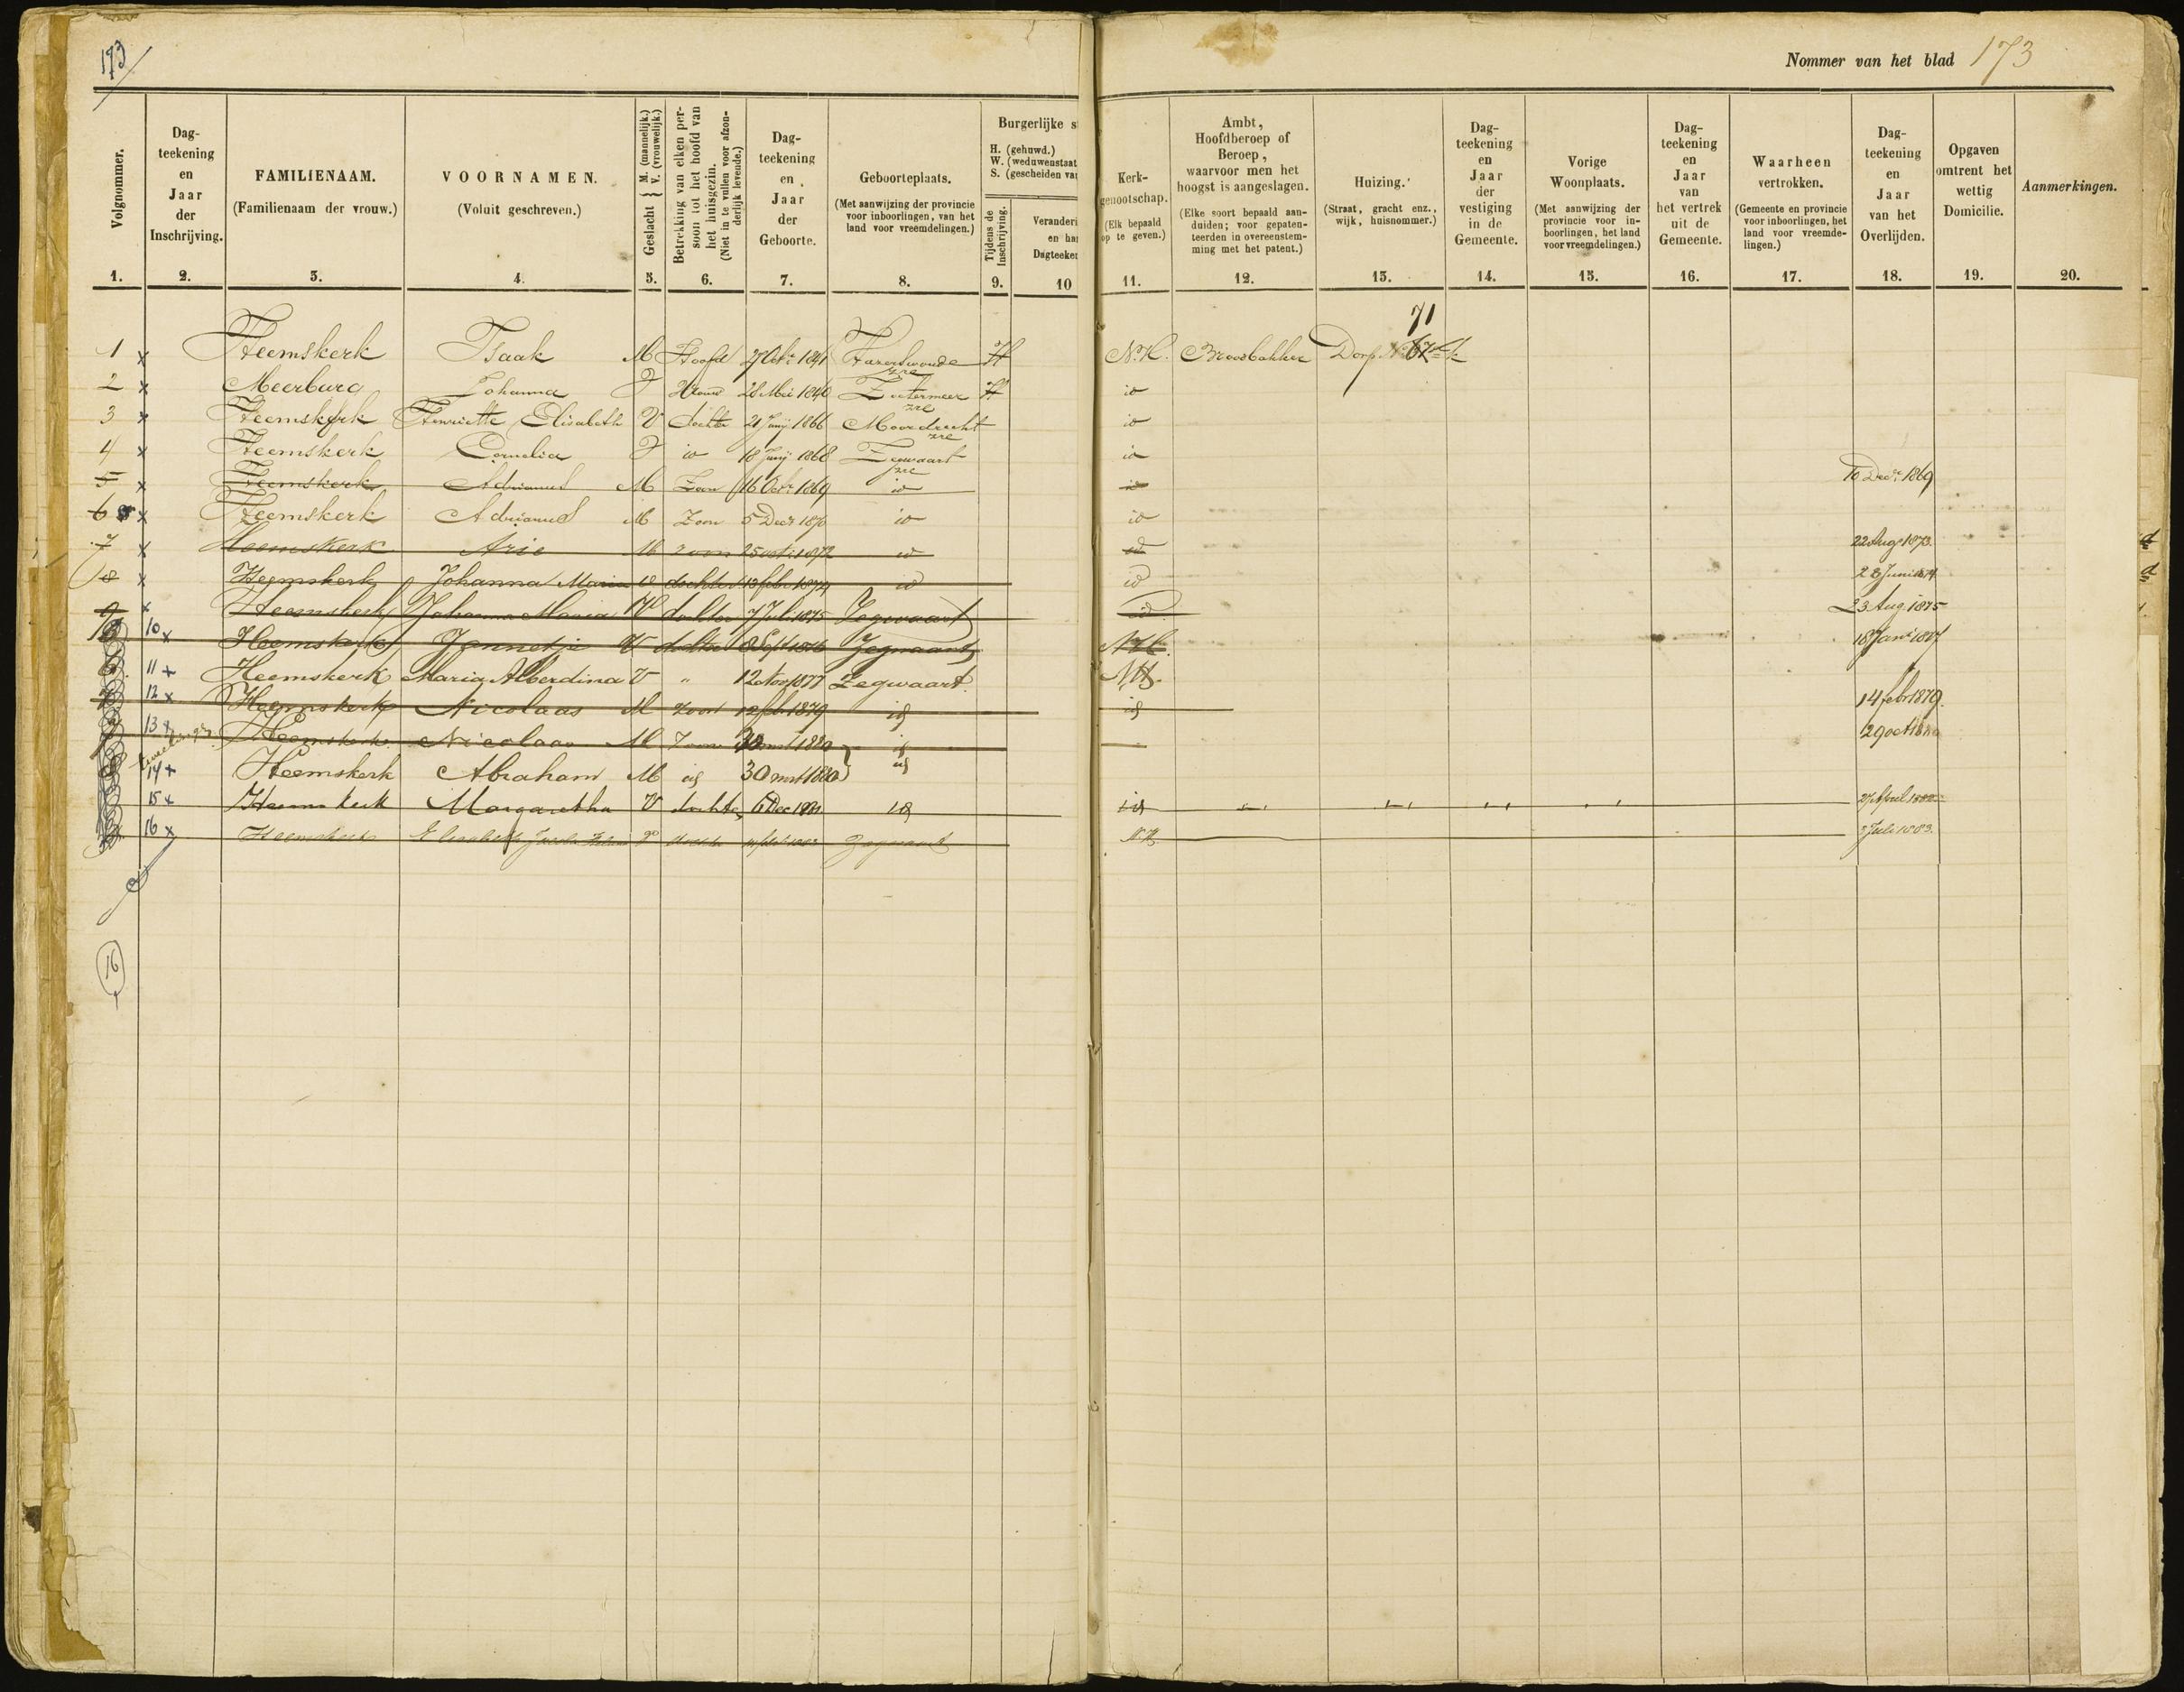 173
Nommer van het blad 173
Volgnommer.
1.
Dag-
teekening
en
Jaar
der
Inschrijving.
2.
FAMILIENAAM.
(Familienaam der vrouw.)
3.
VOORNAMEN.
(Voluit geschreven.)
4.
Geslacht { M. (mannelijk.) V. (vrouwelijk.)
5.
Betrekking van elken per-
soon tot het hoofd van
het huisgezin.
(Niet in te vullen voor afzon-
derlijk levende.)
6.
Dag-
teekening
en
Jaar
der
Geboorte.
7.
Geboorteplaats.
(Met aanwijzing der provincie
voor inboorlingen, van het
land voor vreemdelingen.)
8.
Burgerlijke s
H. (gehuwd.)
W. (weduwenstaat
S. (gescheiden van
Tijdens de
Inschrijving.
9.
Veranderi
en han
Dagteeken
10
Kerk-
genootschap.
(Elk bepaald
op te geven.)
11.
Ambt,
Hoofdberoep of
Beroep,
waarvoor men het
hoogst is aangeslagen.
(Elke soort bepaald aan-
duiden; voor gepaten-
teerden in overeenstem-
ming met het patent.)
12.
Huizing.
(Straat, gracht enz.,
wijk, huisnommer.)
13.
Dag-
teekening
en
Jaar
der
vestiging
in de
Gemeente.
14.
Vorige
Woonplaats.
(Met aanwijzing der
provincie voor in-
boorlingen, het land
voor vreemdelingen.)
15.
Dag-
teekening
en
Jaar
van
het vertrek
uit de
Gemeente.
16.
Waarheen
vertrokken.
(Gemeente en provincie
voor inboorlingen, het
land voor vreemde-
lingen.)
17.
Dag-
teekening
en
Jaar
van het
Overlijden.
18.
Opgaven
omtrent het
wettig
Domicilie.
19.
Aanmerkingen.
20.
71
1 x Heemskerk Isaak M Hoofd 27 Octr 1841 Hazerswoude H N.H. Broodbakker Dorp No 67
2 x Meerburg Johanna V Vrouw 28 Mei 1840 Zoetermeer H id
3 x Heemskerk Henriette Elisabeth V dochter 21 Junij 1866 Moordrecht id
4 x Heemskerk Cornelia V id 18 Junij 1868 Zegwaart id
5 x Heemskerk Adrianus M Zoon 16 Octr 1869 id id 10 Decr 1869
6 x Heemskerk Adrianus M Zoon 5 Decr 1870 id id
7 x Heemskerk Arie M zoon 25 octr 1872 id id 22 Aug 1873
8 x Heemskerk Johanna Maria V dochter 13 febr 1874 id id 28 Juni 1874
9 x Heemskerk Johanna Maria V dochter 7 Juli 1875 Zegwaart id 23 Aug. 1875
10 x Heemskerk Jannetje V dochter Sept 1876 Zegwaart N.H. 18 Jani 1887
11 x Heemskerk Maria Alberdina V " 12 Nov 1877 Zegwaart NH.
12 x Heemskerk Nicolaas M zoon 12 febr 1879 id id 14 febr 1879
13 x Heemskerk Nicolaas M Zoon 30 mrt 1880 id 29 oct 1880
tweelingen
14 x Heemskerk Abraham M id 30 mrt 1880 id
15 x Heemskerk Margaretha V dochter 6 Dec 1881 id id 27 April 1882
16 x Heemskerk Elisabeth V dochter Zegwaart N.H. Juli 1883.
16